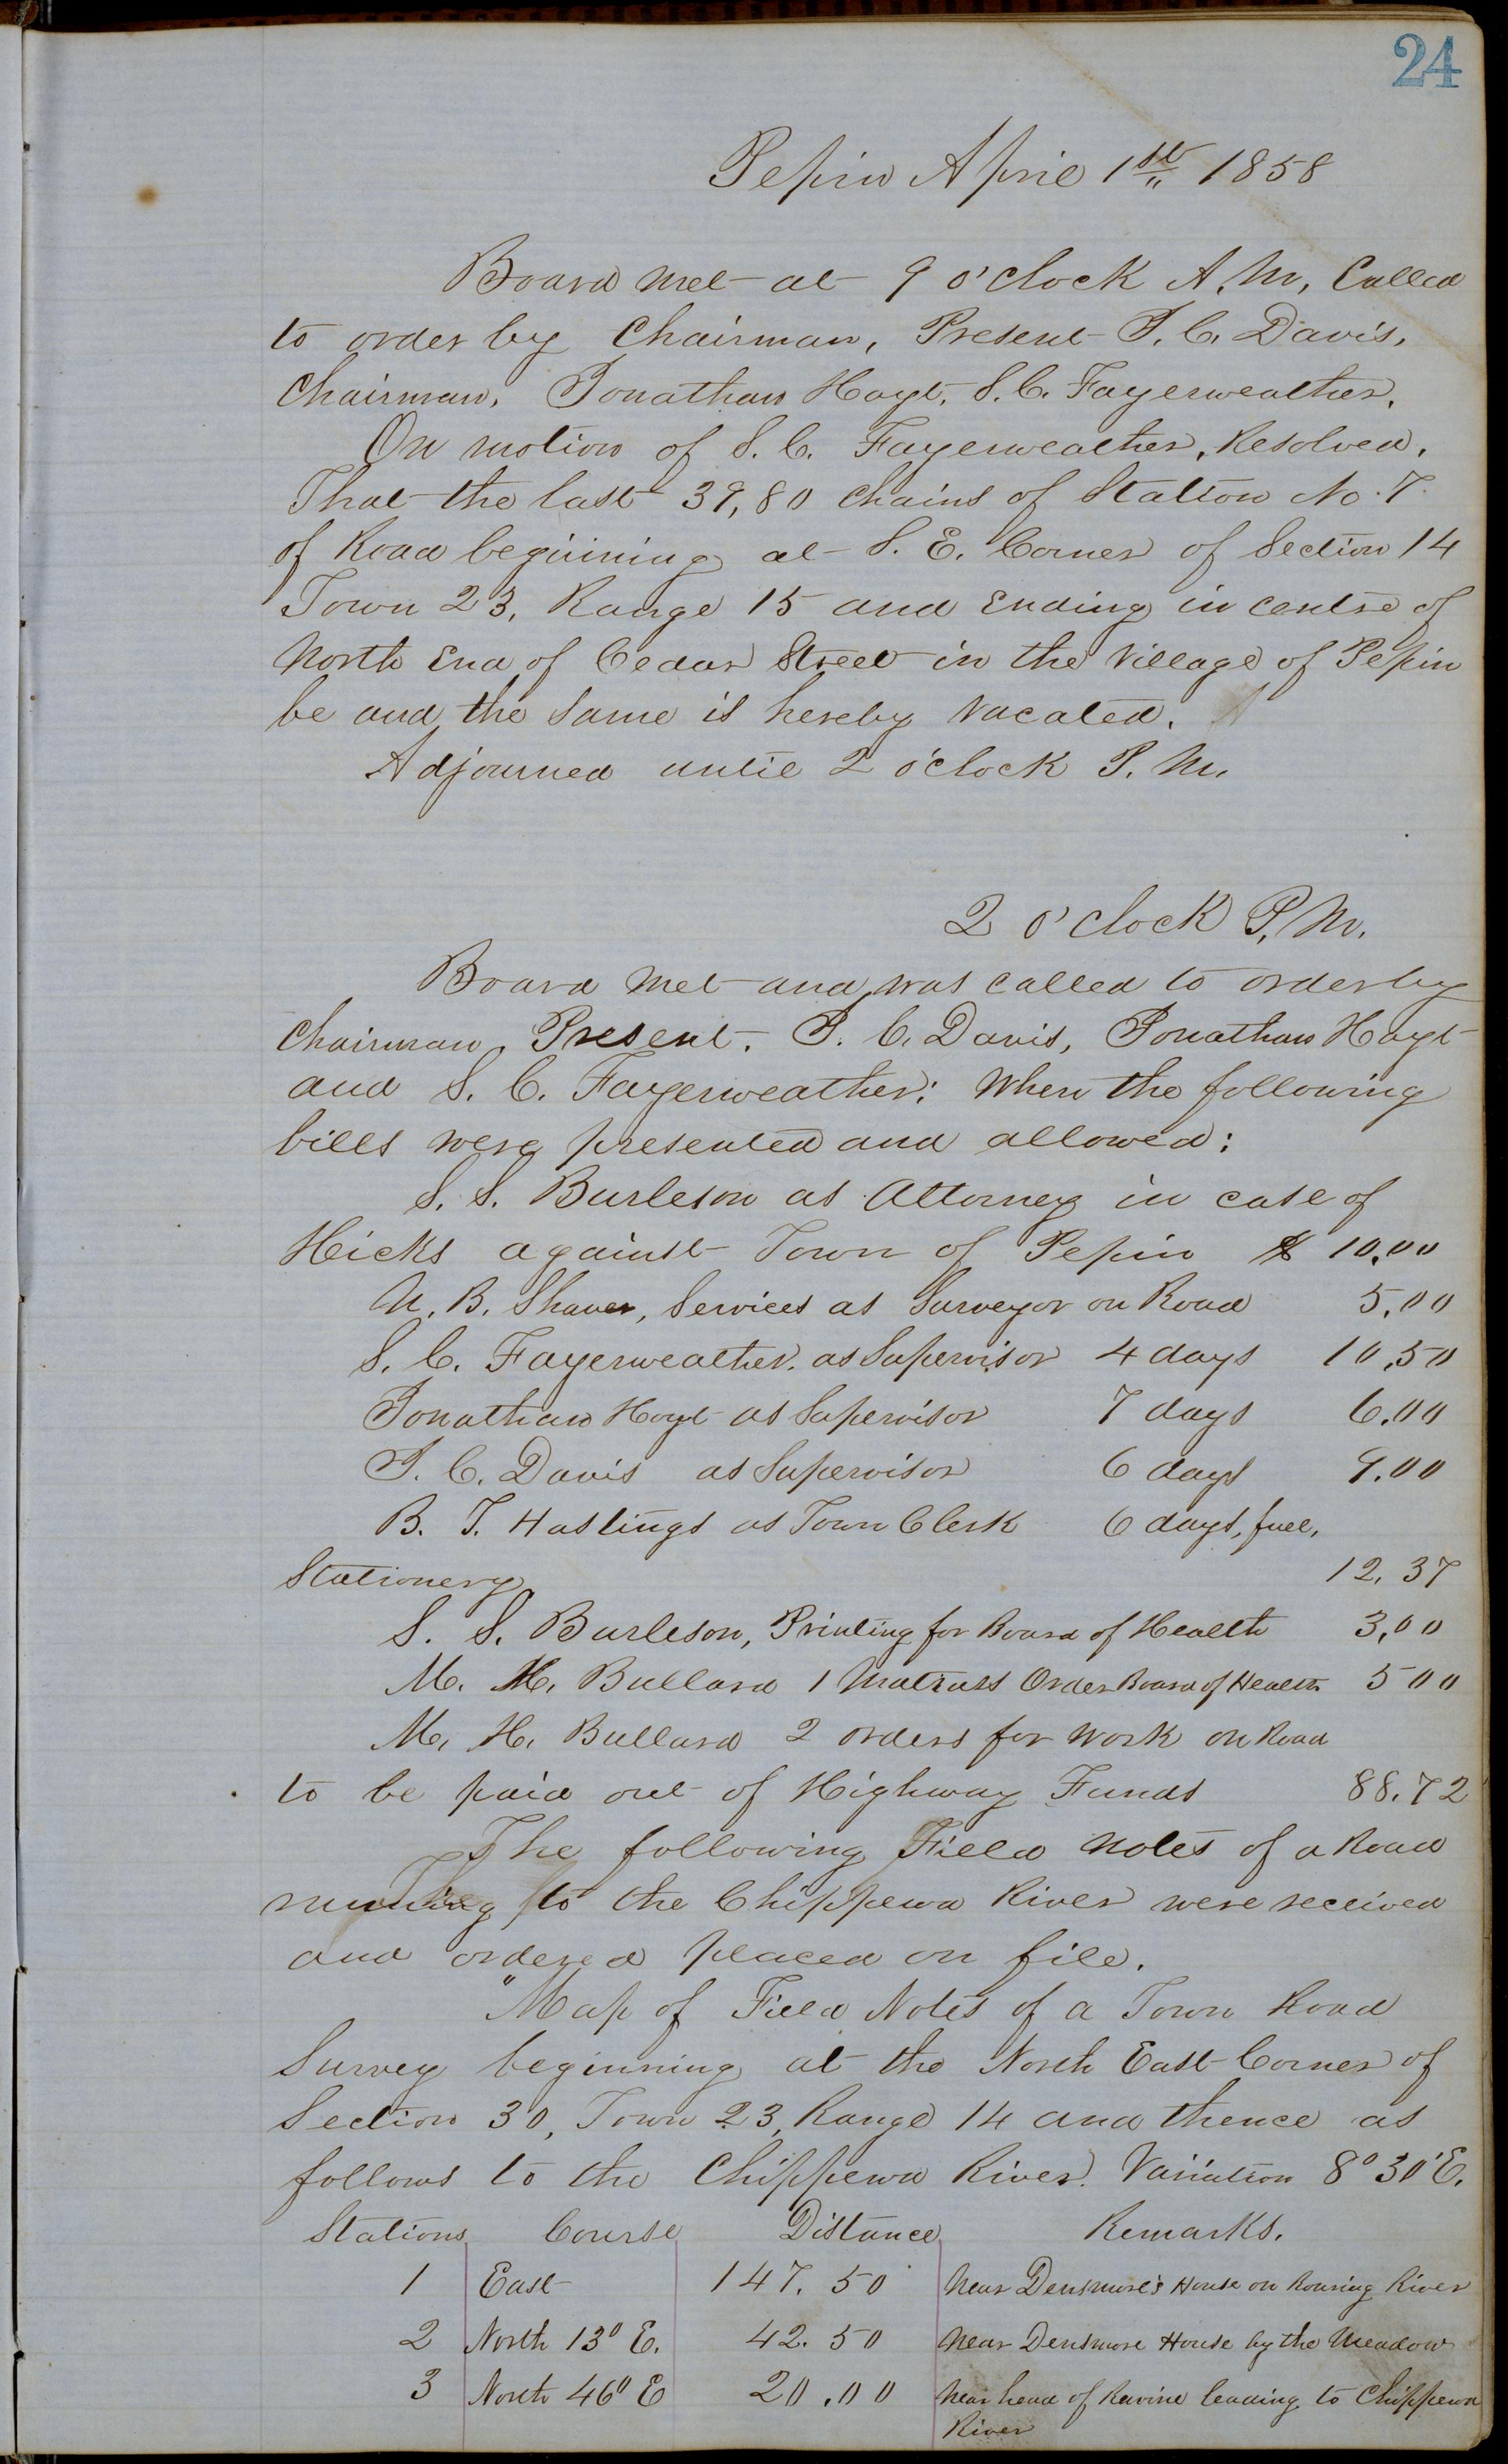 24
Pepin April 1st 1858
Board met at 9 o'clock A.M. Called
to order by Chairman, Present J. C. Davis,
Chairman, Jonathan Hoyt, S. C. Fayerweather.
On motion of S. C. Fayerweather, Resolved,
That the last 39,80 Chains of Station No. 7.
of Road beginning at S. E. Corner of Section 14
Town 23, Range 15 and Ending in centre of
North End of Cedar Street in the Village of Pepin
be and the same is hereby vacated.
Adjourned until 2 o'clock P.M.
2 o'clock P.M.
Board met and was called to order by
Chairman, Present. J. C. Davis, Jonathan Hoyt
and S. C. Fayerweather: When the following
bills were presented and allowed:
S. S. Burleson as Attorney in case of
Hicks against Town of Pepin $ 10.00
U. B. Shaver, Services as Surveyor on Road 5.00
S. C. Fayerweather. as Supervisor 4 days 10.50
Jonathan Hoyt as Supervisor 7 days 6.00
J. C. Davis as Supervisor 6 days 9.00
B. T. Hastings as Town Clerk 6 days, fuel,
Stationery 12.37
S. S. Burleson, Printing for Board of Health 3,00
M. H. Bullard 1 Matrass Order Board of Health 500
M. H. Bullard 2 orders for work on Road
to be paid out of Highway Funds 88.72
The following Field Notes of a Road
running to the Chippewa River were received
and ordered placed on file.
"Map of Field Notes of a Town Road
Survey beginning at the North East Corner of
Section 30, Town 23, Range 14 and thence as
follows to the Chippewa River. Variation 8° 30' E.
Stations Course Distance Remarks.
1 East 147.50 Near Densmore's House on Roaring River
2 North 13° E. 42.50 Near Densmore House by the Meadow
3 North 46° E 20.00 Near head of Ravine leading to Chippewa
River